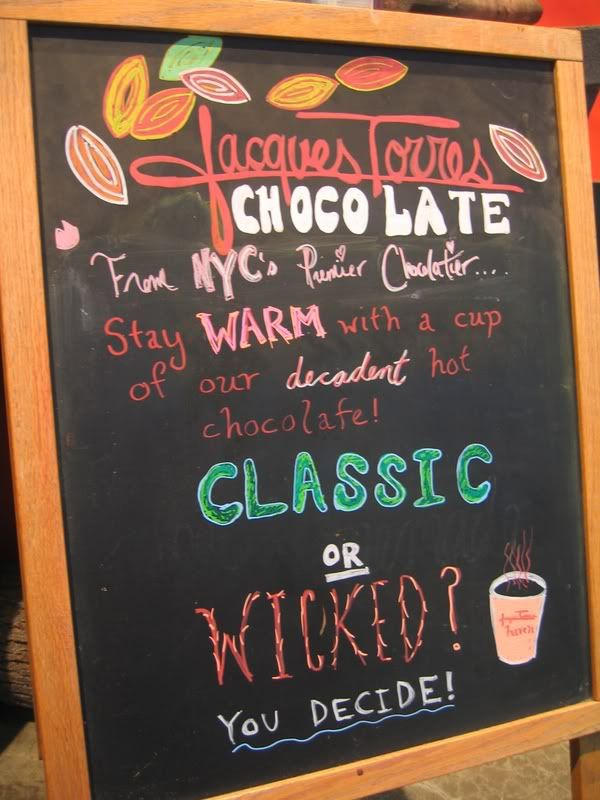 Jacques Torres
CHOCOLATE
From NYC's Premier Chocolatier....
Stay WARM with a cup
of our decadent hot
chocolate!
CLASSIC
OR
WICKED?
Jacques Torres
haven
YOU DECIDE!